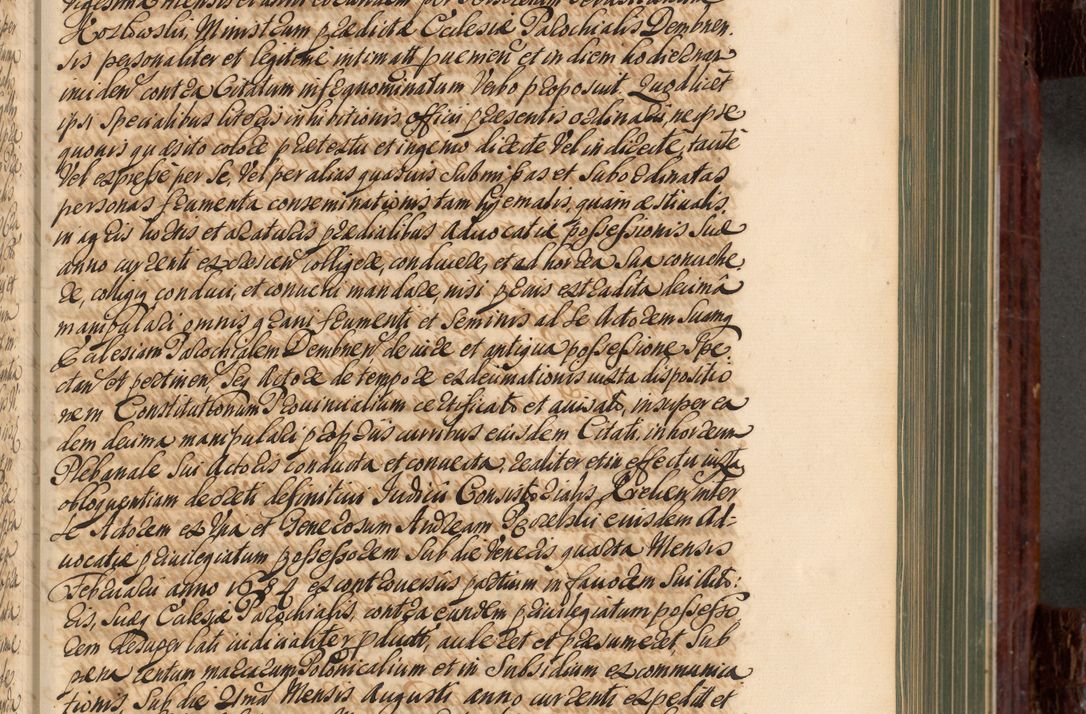 Kozlowski, Ministrum praedictae Ecclesiae Parochialis Dembnen.
sis personaliter et legitime intimatt praemen et in diem hodiernam
inciden contra Citatum infranominatum Verbo proposuit. Quod licet
ipsi Specialibus literis inhibitionis officii praesentis ordinariis ne ipse
quovis quaesito colore praetextu et ingenio directe Vel in directe, tacite
Vel expresse per Se, Vel per alias quasvis Submissas et Subordinatas
personas frumenta conseminationis tam hyemalis, quam aestivalis
in agris hortis et araturis praedialibus Advocatiae possessionis Suae
anno currenti excrescen colligere, conducere, et ad horrea Sua convehe
re, colligi conduci, et convehi mandare, nisi prius extradita decima
manipulari omnis grani frumenti et Seminis al Se Actorem Suamq
Ecclesiam Parochialem Dembnen de iure et antiqua possessione Spe,
ctan et pertinen, Seq Actore de tempore exdecimationis iuxta dispositio
nem Constitutionum Provincialium certificato et avisato, insuper ea
dem decima manipulari propriis curribus eiusdem Citati, in horreum
Plebanale Sui Actoris conducta et convecta, realiter et in effectu iuxta
obloquentiam decreti definitivi Iudicii Consistorialis Kielcen inter
Se Actorem ex Una et Generosum Andream eiusdem Ad-
vocatiae privilegiatum possessorem Sub die Veneris quarta Mensis
Februarii anno 1684 ex controversiis partium in favorem Sui Acto:
ris, Suaeq Ecclesiae Parochialis, contra eundem privilegiatum possesso
rem desuper lati iudicialiter product, auderet et praesumeret, Sub
paena centum marcarum Polonicalium et in Subsidium excommunica
tionis, Sub die Mensis Augusti anno currenti expedit et